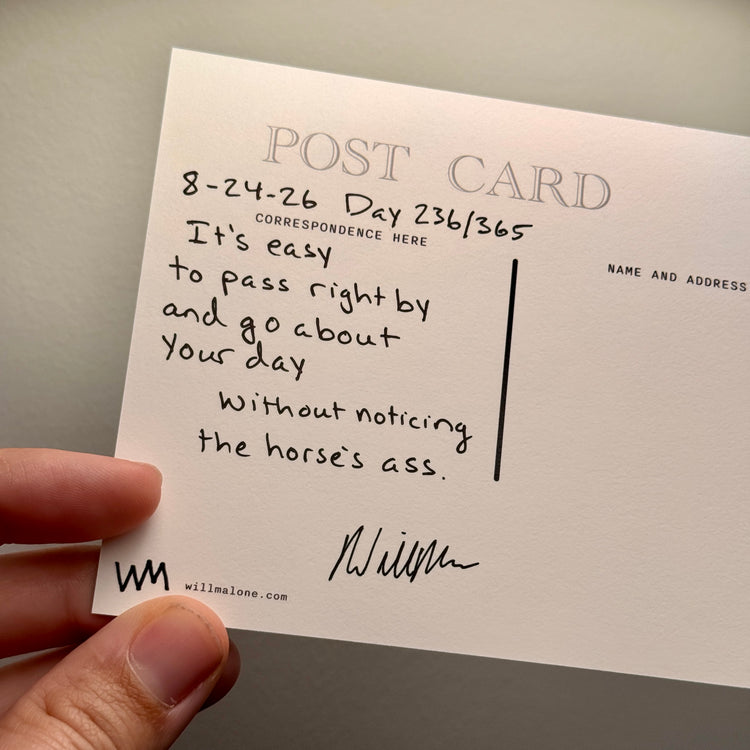 POST CARD
8-24-26 Day 236/365
CORRESPONDENCE HERE
It's easy
to pass right by
and go about
your day
without noticing
the horse's ass.
NAME AND ADDRESS
WM
willmalone.com